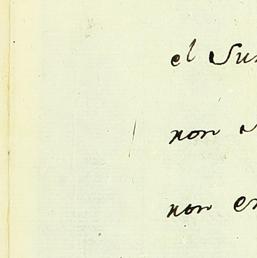 el Su
non
non en